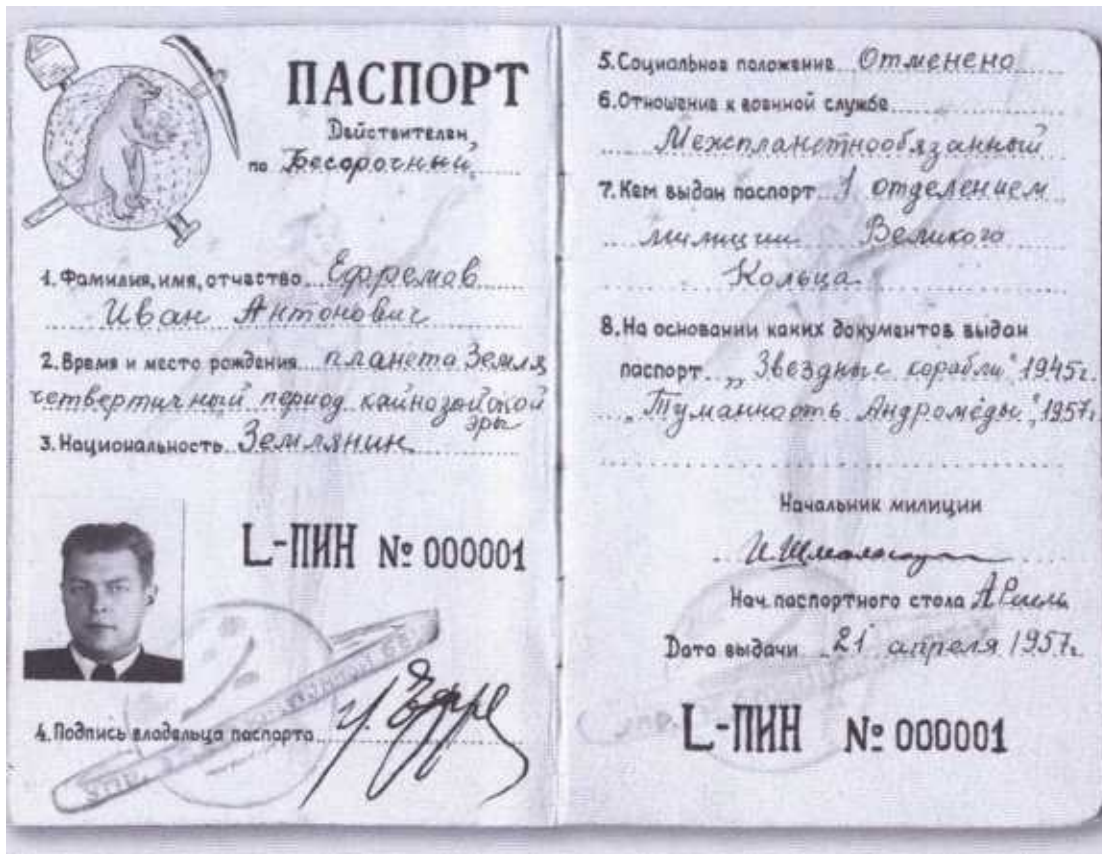 ПАСПОРТ
Действителен
по Бессрочный
1. Фамилия, имя, отчество Ефремов
Иван Антонович
2. Время и место рождения планета Земля
четвертичный период кайнозойской
эры
3. Национальность Землянин
L-ПИН № 000001
4. Подпись владельца паспорта И. Ефре
5. Социальное положение Отменено
6. Отношение к военной службе
Межпланетнообязанный
7. Кем выдан паспорт 1 отделением
милиции Великого
Кольца
8. На основании каких документов выдан
паспорт „Звездные корабли" 1945г.
„Туманность Андромеды", 1957г.
Начальник милиции
Нач. паспортного стола
Дата выдачи 21 апреля 1957г.
L-ПИН № 000001